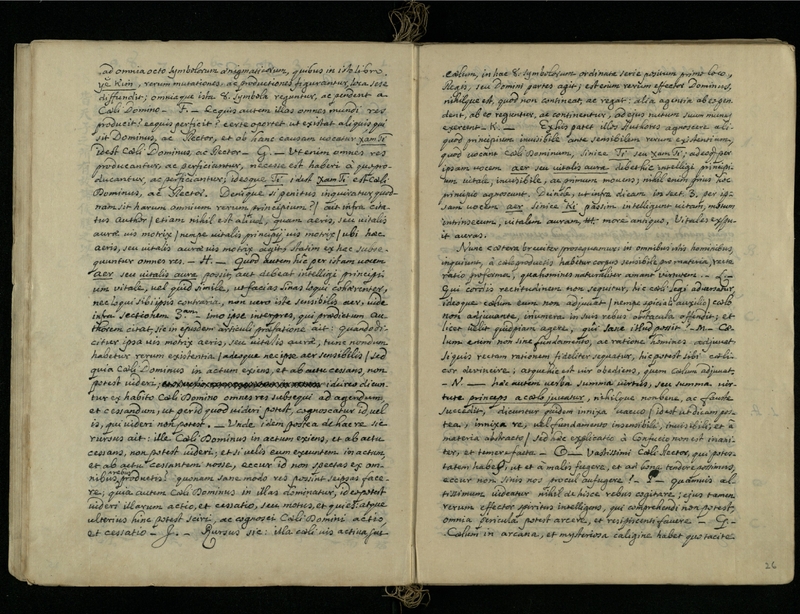 ad omnia octo symbolorum ænigmaticorum, quibus in isto libro
ye Kim, rerum mutationes, ac productiones figurantur, sese
diffundit; omniaque ista 8. symbola reguntur, ac pendent a
Cœli Domino. — F. — Ecquis autem illas omnes mundi res
producit? ecquis perficit? certe oportet ut existat aliquis qui
sit Dominus, ac Rector, et ob hanc causam vocatur xam Ti
idest Cœli Dominus, ac Rector — G. — Ut enim omnes res
producantur, ac perficiantur, necesse est haberi à quo pro-
ducantur, ac perficiantur; ideoque Ti idest xam Ti est Cœli
Dominus, ac Rector. Denique si penitus inquiratur quod-
nam sit harum omnium rerum principium? / aut infra cita-
tus Author / etiam nihil est aliud, quam aeris, seu vitalis
auræ vis motrix / nempe vitalis principij vis motrix / ubi hæc
aeris, seu vitalis auræ vis motrix agit, statim ex hac subse-
quuntur omnes res. — H. — Quod autem hic per istam vocem
aer seu vitalis aura possit aut debeat intelligi principi
um vitale, vel quid simile, ut facias sinas loqui cohærenter,
nec loqui sibi ipsis contraria, non vero iste sensibilis aer, vide
infra sectionem 3.am Imo ipse interpres, qui prædictum Au
thorem citat, sic in ejusdem articuli præfatione ait: quando di-
citur ipsa vis motrix aeris, seu vitalis auræ, tunc nondum
habetur rerum existentia / adeoque nec ipse aer sensibilis / sed
quia Cœli Dominus in actum exiens, et ab actu cessans, non
potest videri, ideireo dicun
tur ex habito Cœli Domino omnes res subsequi ad agendum,
et cessandum, ut per id quod videri potest, cognoscatur id vel
is, qui videri non potest. — Unde idem postea de hac re sic
rursus ait: ille Cœli Dominus in actum exiens, et ab actu
cessans, non potest videri; et si velis eum exeuntem in actum,
et ab actu cessantem nosse, eccur id non spectas ex om-
nibus rebus productis? quonam sane modo res possint seipsas face-
re; quia autem Cœli Dominus in illas dominatur, id est potest
videri illarum actio, et cessatio, seu motus, et quies; atque
ulterius hinc potest sciri, ac cognosci Cœli Domini actio,
et cessatio — J. — Rursus sic: illa cœli vis activa su
cœlum, in hac 8. symbolorum ordinata serie positum primo loco,
Regis, seu Domini partes agit; est enim rerum effector Dominus,
nihilque est, quod non contineat, ac regat: alia agentia ab eo pen
dent, ab eo reguntur, ac continentur, ad ejus nutum suum munus
exercent — K. — Exhis patet illos Authores agnoscere ali-
quod principium invisibile ante sensibilem rerum existentiam,
quod vocant Cœli Dominum, sinice Ti seu xam Ti; adeoq; per
ipsam vocem aer seu vitalis aura debet hic intelligi principi
um vitale, invisibile, ac primum movens; nihil enim prius hoc
principio agnoscunt. Deinde, ut infra dicam in sect. 3. per ip-
sam vocem aer sinice Ki passim intelligunt vitam, motum
intrinsecum, vitalem auram, more antiquo, Vitales exspu-
it auras.
Nunc cætera breviter prosequamur in omnibus istis hominibus,
inquiunt, à cælo productis habetur corpus sensibile pro materia, recta
ratio pro forma, qua homines naturaliter amant virtutem — L. —
Qui cordis rectitudinem non sequitur, hic cœli legi adversatur,
ideoque cœlum eum non adjuvat / nempe speciali auxilio / cœlo
non adjuvante, id unum in suis rebus obstacula offendit; et
licet velit quidpiam agere, qui sane illud possit — M. — Cœ-
lum enim non sine fundamento, ac ratione homines adjuvat.
si quis rectam rationem fideliter sequatur, hic potest sibi cœli-
cor devincire, atque hic est vir obediens, quem cœlum adjuvat,
— N. — hæc autem verba summa virtus, seu summa vir-
tute princeps a cœlo juvatur, nihilque non bene, ac fauste
succedit, dicuntur quidem innixa vacuo / idest ut dicam pos-
tea, innixa re, vel fundamento insensibili, invisibili, et à
materia abstracto / sed hæc explicatio à Confucio non est inani-
ter, et temere facta. — O. — Vastissimi Cœli Rector, qui potes-
tatem habes, ut et à malis fugere, et ad bona tendere possimus,
eccur non sinis nos procul aufugere! — P — quamvis al
tissimum videatur nihil de hisce rebus cogitare; ejus tamen
rerum effector spiritus intelligens, qui comprehendi non potest,
omnia pericula potest arcere, et resipiscenti favere — Q. —
Cœlum in arcana, et mysteriosa caligine habet quo tacite
26